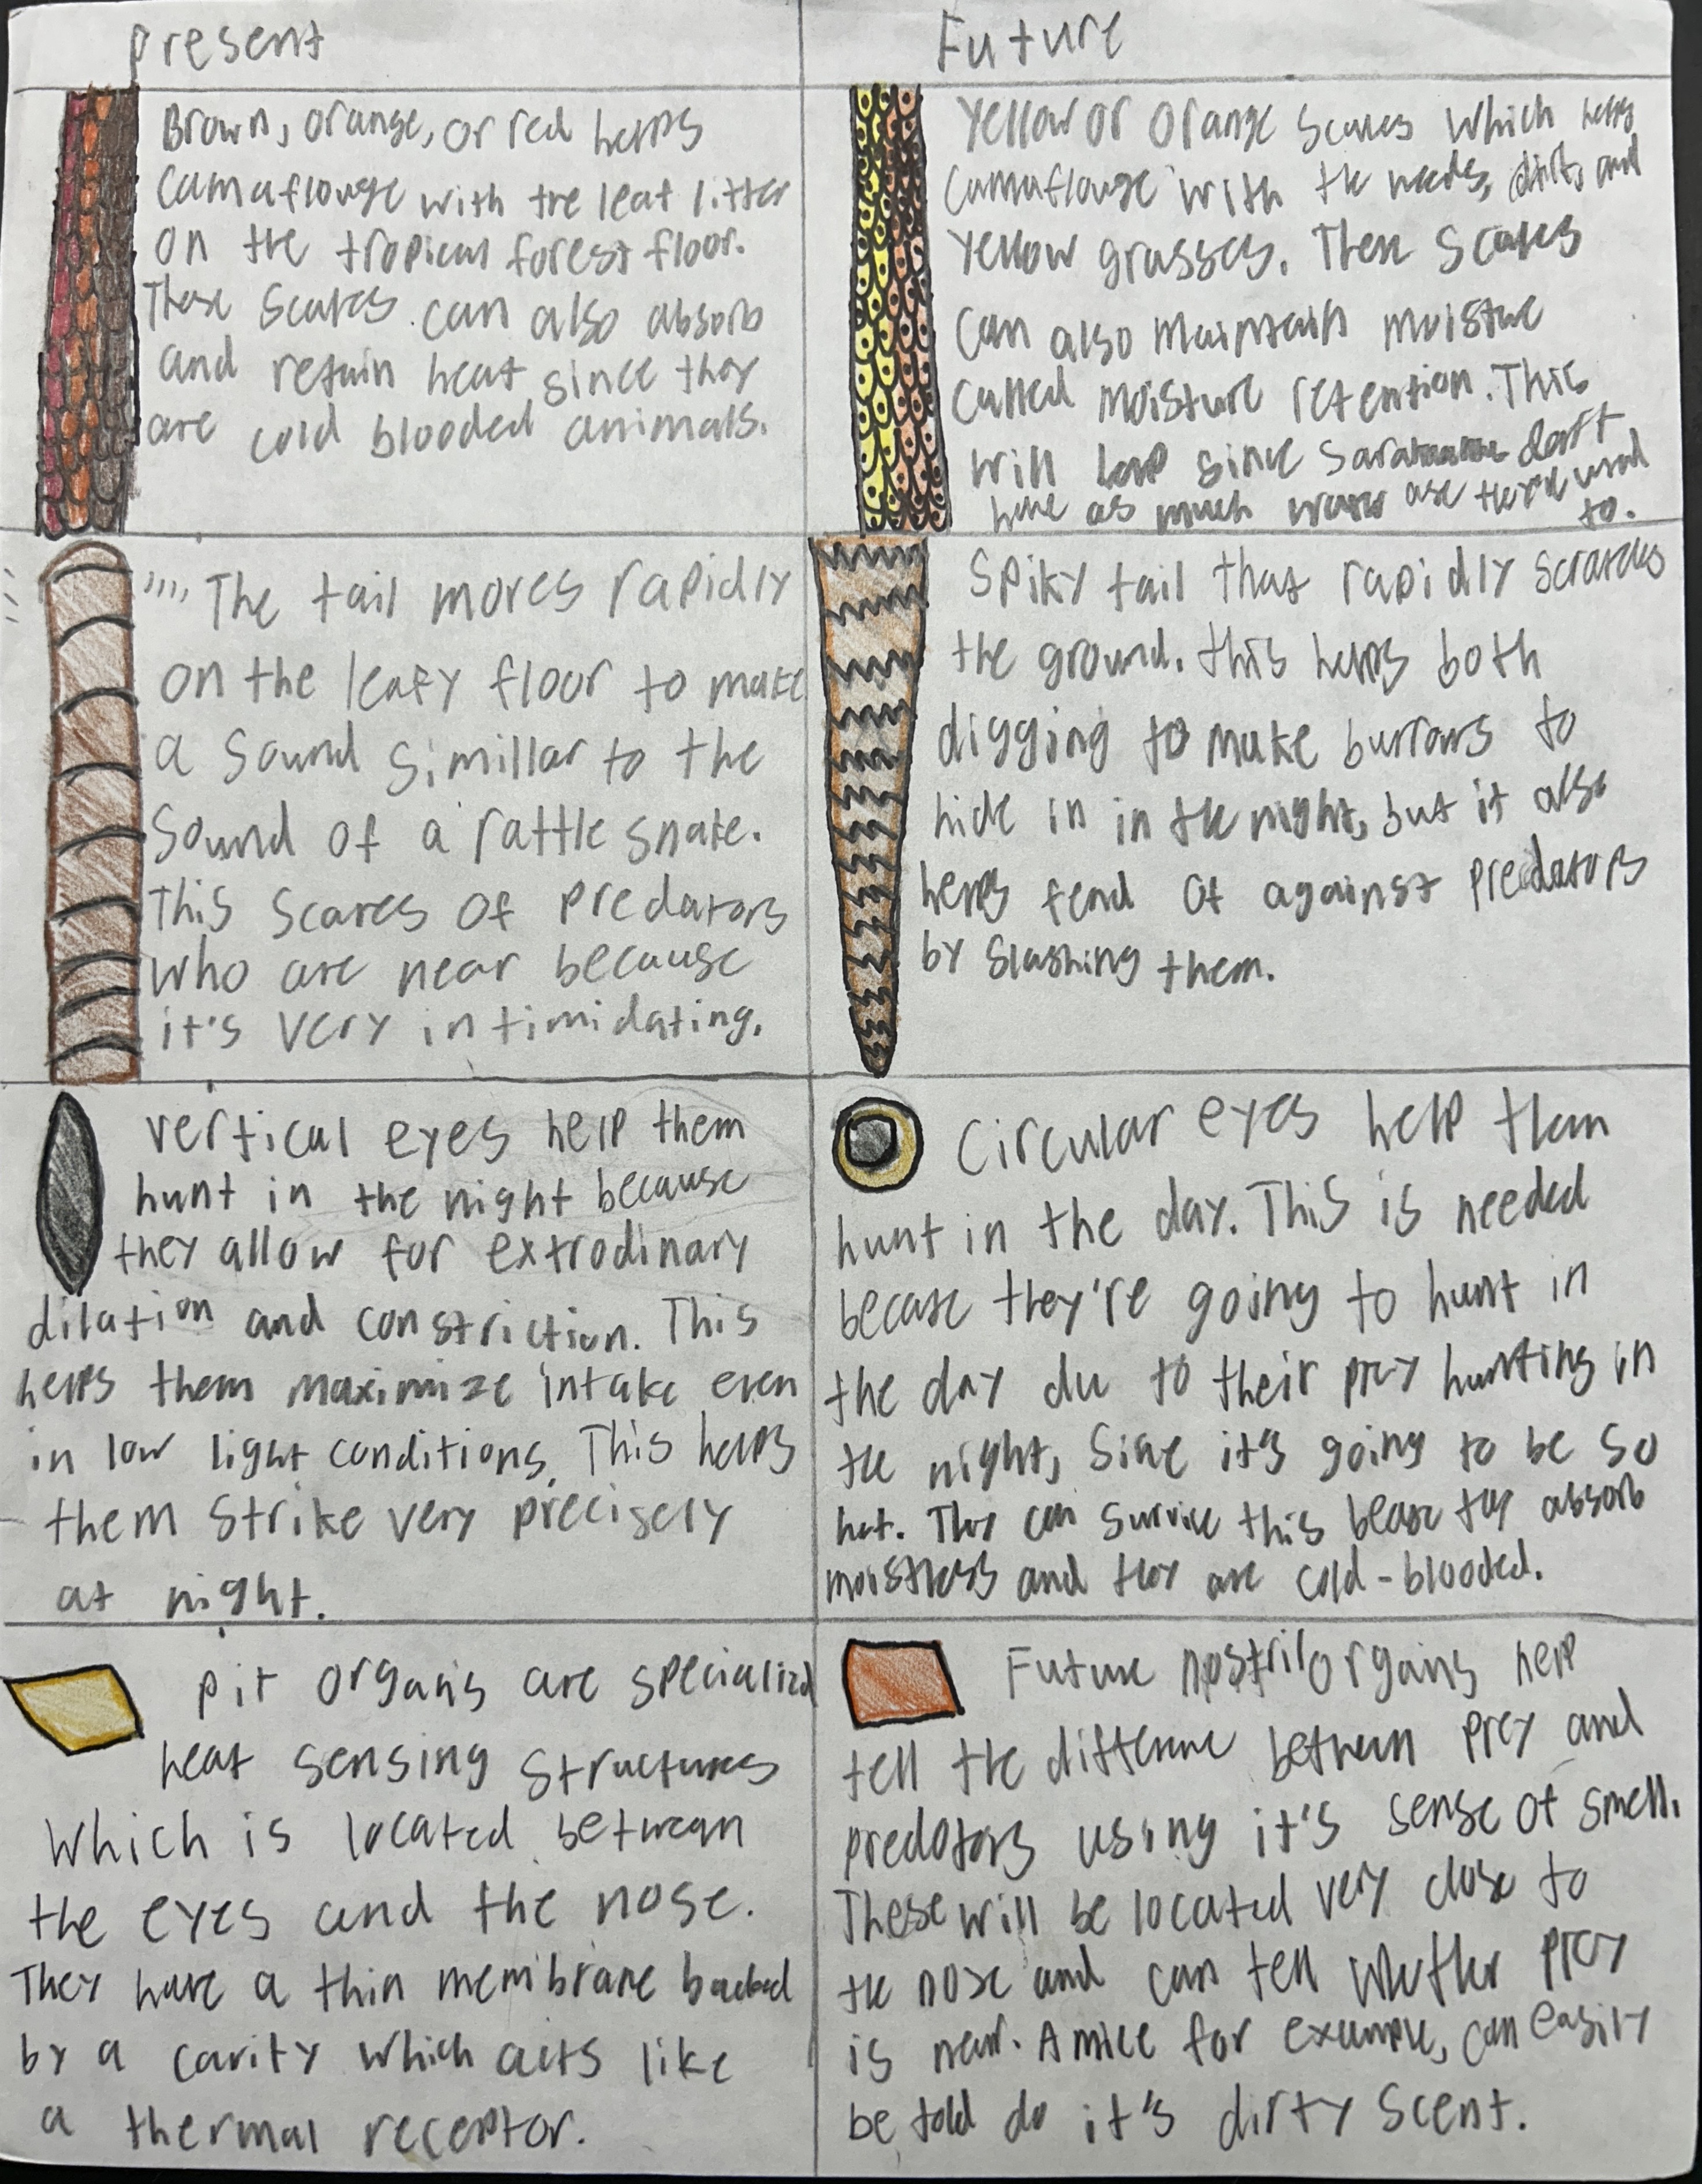 Present
Brown, orange, or red helps
camaflouge with the leaf litter
on the tropical forest floor.
These scales can also absorb
and retain heat since they
are cold blooded animals.
The tail moves rapidly
on the leafy floor to make
a sound simillar to the
sound of a rattle snake.
This scares of predators
who are near because
it's very intimidating.
vertical eyes help them
hunt in the night because
they allow for extrodinary
dilation and constriction. This
helps them maximize intake even
in low light conditions. This helps
them strike very precisely
at night.
pit organs are specialized
heat sensing structures
which is located between
the eyes and the nose.
They have a thin membrane backed
by a cavity which acts like
a thermal receptor.
Future
Yellow or orange scales which helps
camaflouge with the and
yellow grasses. These scales
can also maintain moisture
called moisture retention. This
will help since don't
have as much as used
to.
Spiky tail that rapidly scratches
the ground. this helps both
digging to make burrows to
hide in in the night, but it also
helps fend of against predators
by slashing them.
Circular eyes help them
hunt in the day. This is needed
becase they're going to hunt in
the day du to their prey hunting in
the night, Sine it's going to be so
hot. They can survive this absorb
and they are cold-blooded.
Future nostril organs help
tell the difference between prey and
predotors using it's sense of smell.
These will be located very close to
the nose and can tell whether prey
is near. A mice for example, can easily
be told du it's dirty scent.